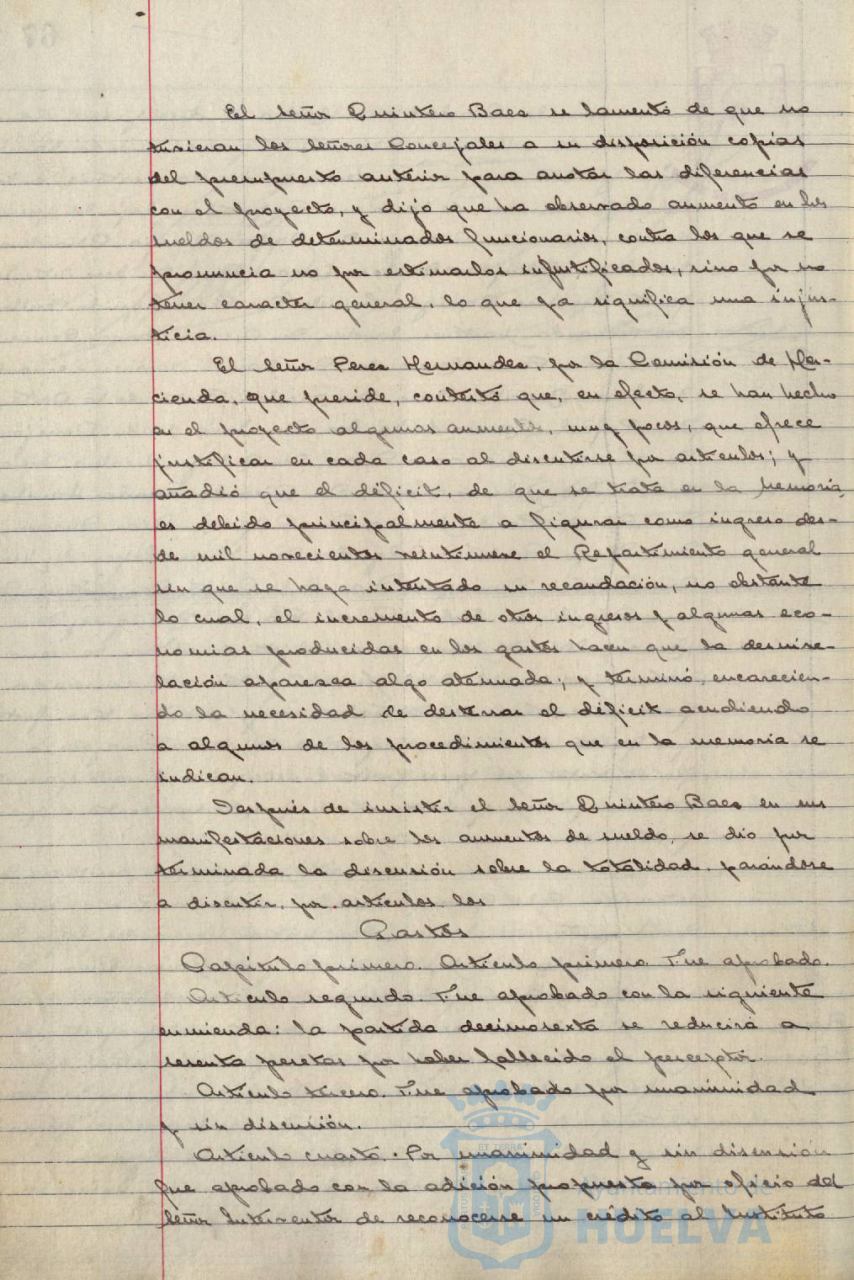 El señor Quintero Baez se lamentó de que no
tuvieran los señores Concejales a su disposición copias
del presupuesto anterior para anotar las diferencias
con el proyecto, y dijo que ha observado aumento en los
sueldos de determinados funcionarios, contra los que se
pronuncia no por estimarlos injustificados, sino por no
tener caracter general, lo que ya significa una injus-
ticia.
El señor Perez Hernandez, por la Comisión de Ha-
cienda, que preside, contestó que, en efecto, se han hecho
en el proyecto algunos aumentos, muy pocos, que ofrece
justificar en cada caso al discutirse por articulos; y
añadió que el déficit, de que se trata en la Memoria,
es debido principalmente a figurar como ingreso des-
de mil novecientos veintinueve el Repartimiento general
sin que se haya intentado su recaudación, no obstante
lo cual, el incremento de otros ingresos y algunas eco-
nomias producidas en los gastos hacen que la desnive-
lación aparezca algo atenuada; y terminó encarecien-
do la necesidad de desterrar el déficit acudiendo
a algunos de los procedimientos que en la memoria se
indican.
Después de insistir el señor Quintero Baez en sus
manifestaciones sobre los aumentos de sueldo, se dio por
terminada la discusión sobre la totalidad, pasándose
a discutir, por articulos los
Gastos
Capitulo primero. Articulo primero. Fue aprobado.
Articulo segundo. Fue aprobado con la siguiente
enmienda: la partida decimosexta se reducirá a
sesenta pesetas por haber fallecido el perceptor.
Articulo tercero. Fue aprobado por unanimidad
y sin discusión.
Articulo cuarto. Por unanimidad y sin discusión
fue aprobado con la adición propuesta por oficio del
señor Interventor de reconocerse un crédito al Instituto
Ayuntamiento de
HUELVA